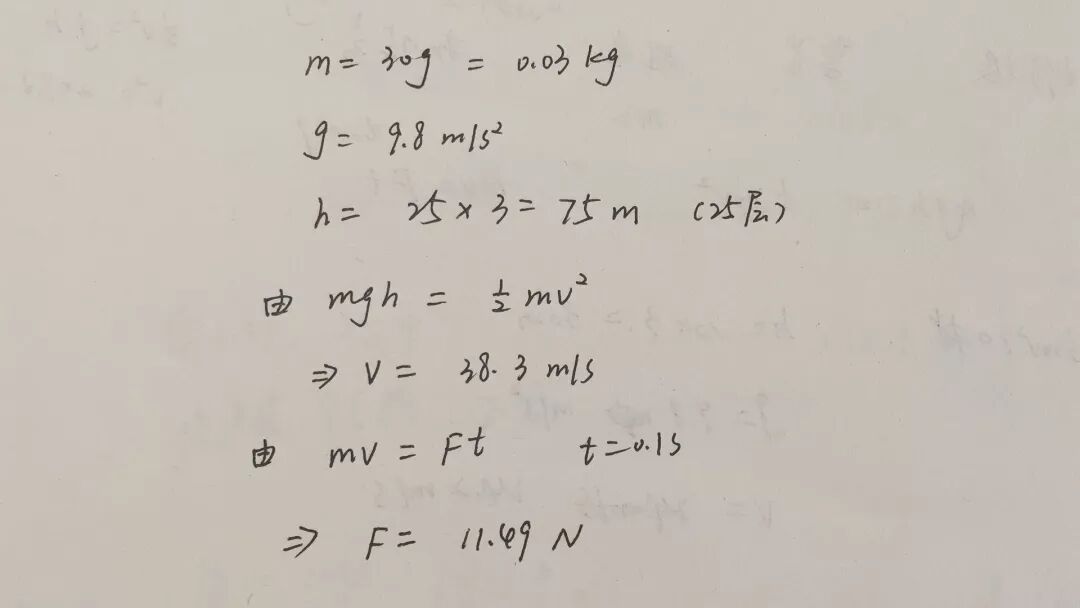 m = 30g = 0.03 kg
g = 9.8 m/s²
h = 25 × 3 = 75 m (25层)
由 mgh = ½ mv²
⇒ v = 38.3 m/s
由 mv = Ft t = 0.1s
⇒ F = 11.49 N